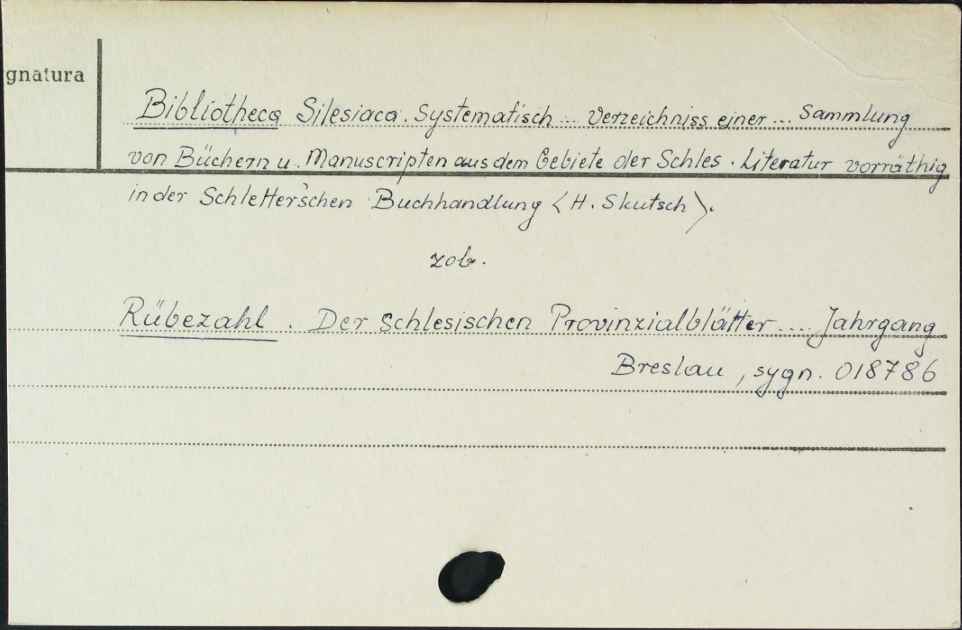 gnatura
Bibliotheca Silesiaca. Systematisch... Verzeichniss einer... Sammlung
von Büchern u. Manuscripten aus dem Gebiete der Schles. Literatur vorräthig
in der Schletter'schen Buchhandlung <H. Skutsch>.
zob.
Rübezahl. Der Schlesischen Provinzialblätter.... Jahrgang
Breslau, sygn. 018786